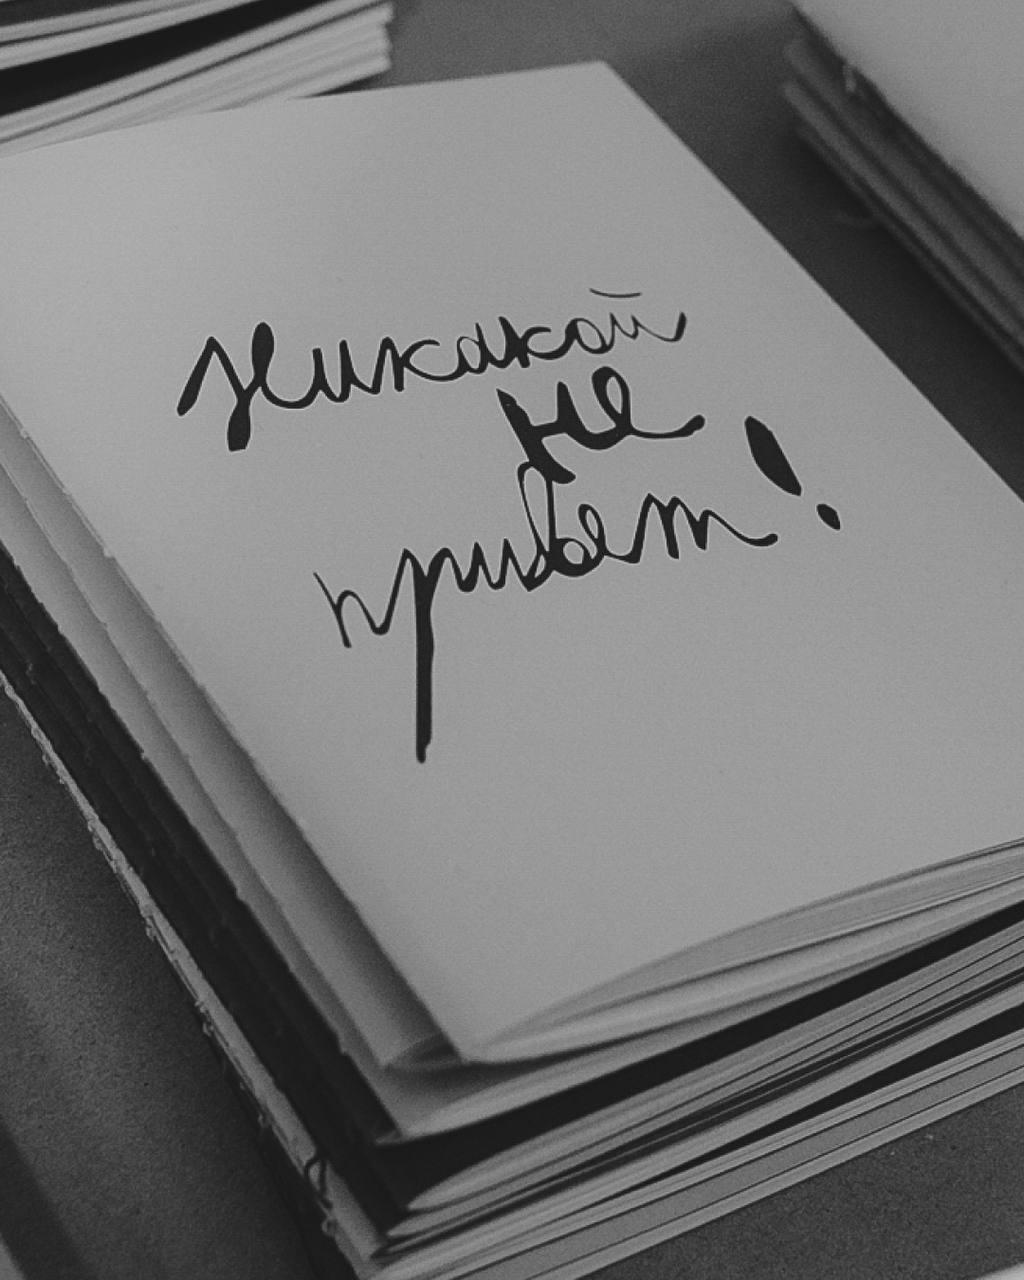 Никакой
не
привет!